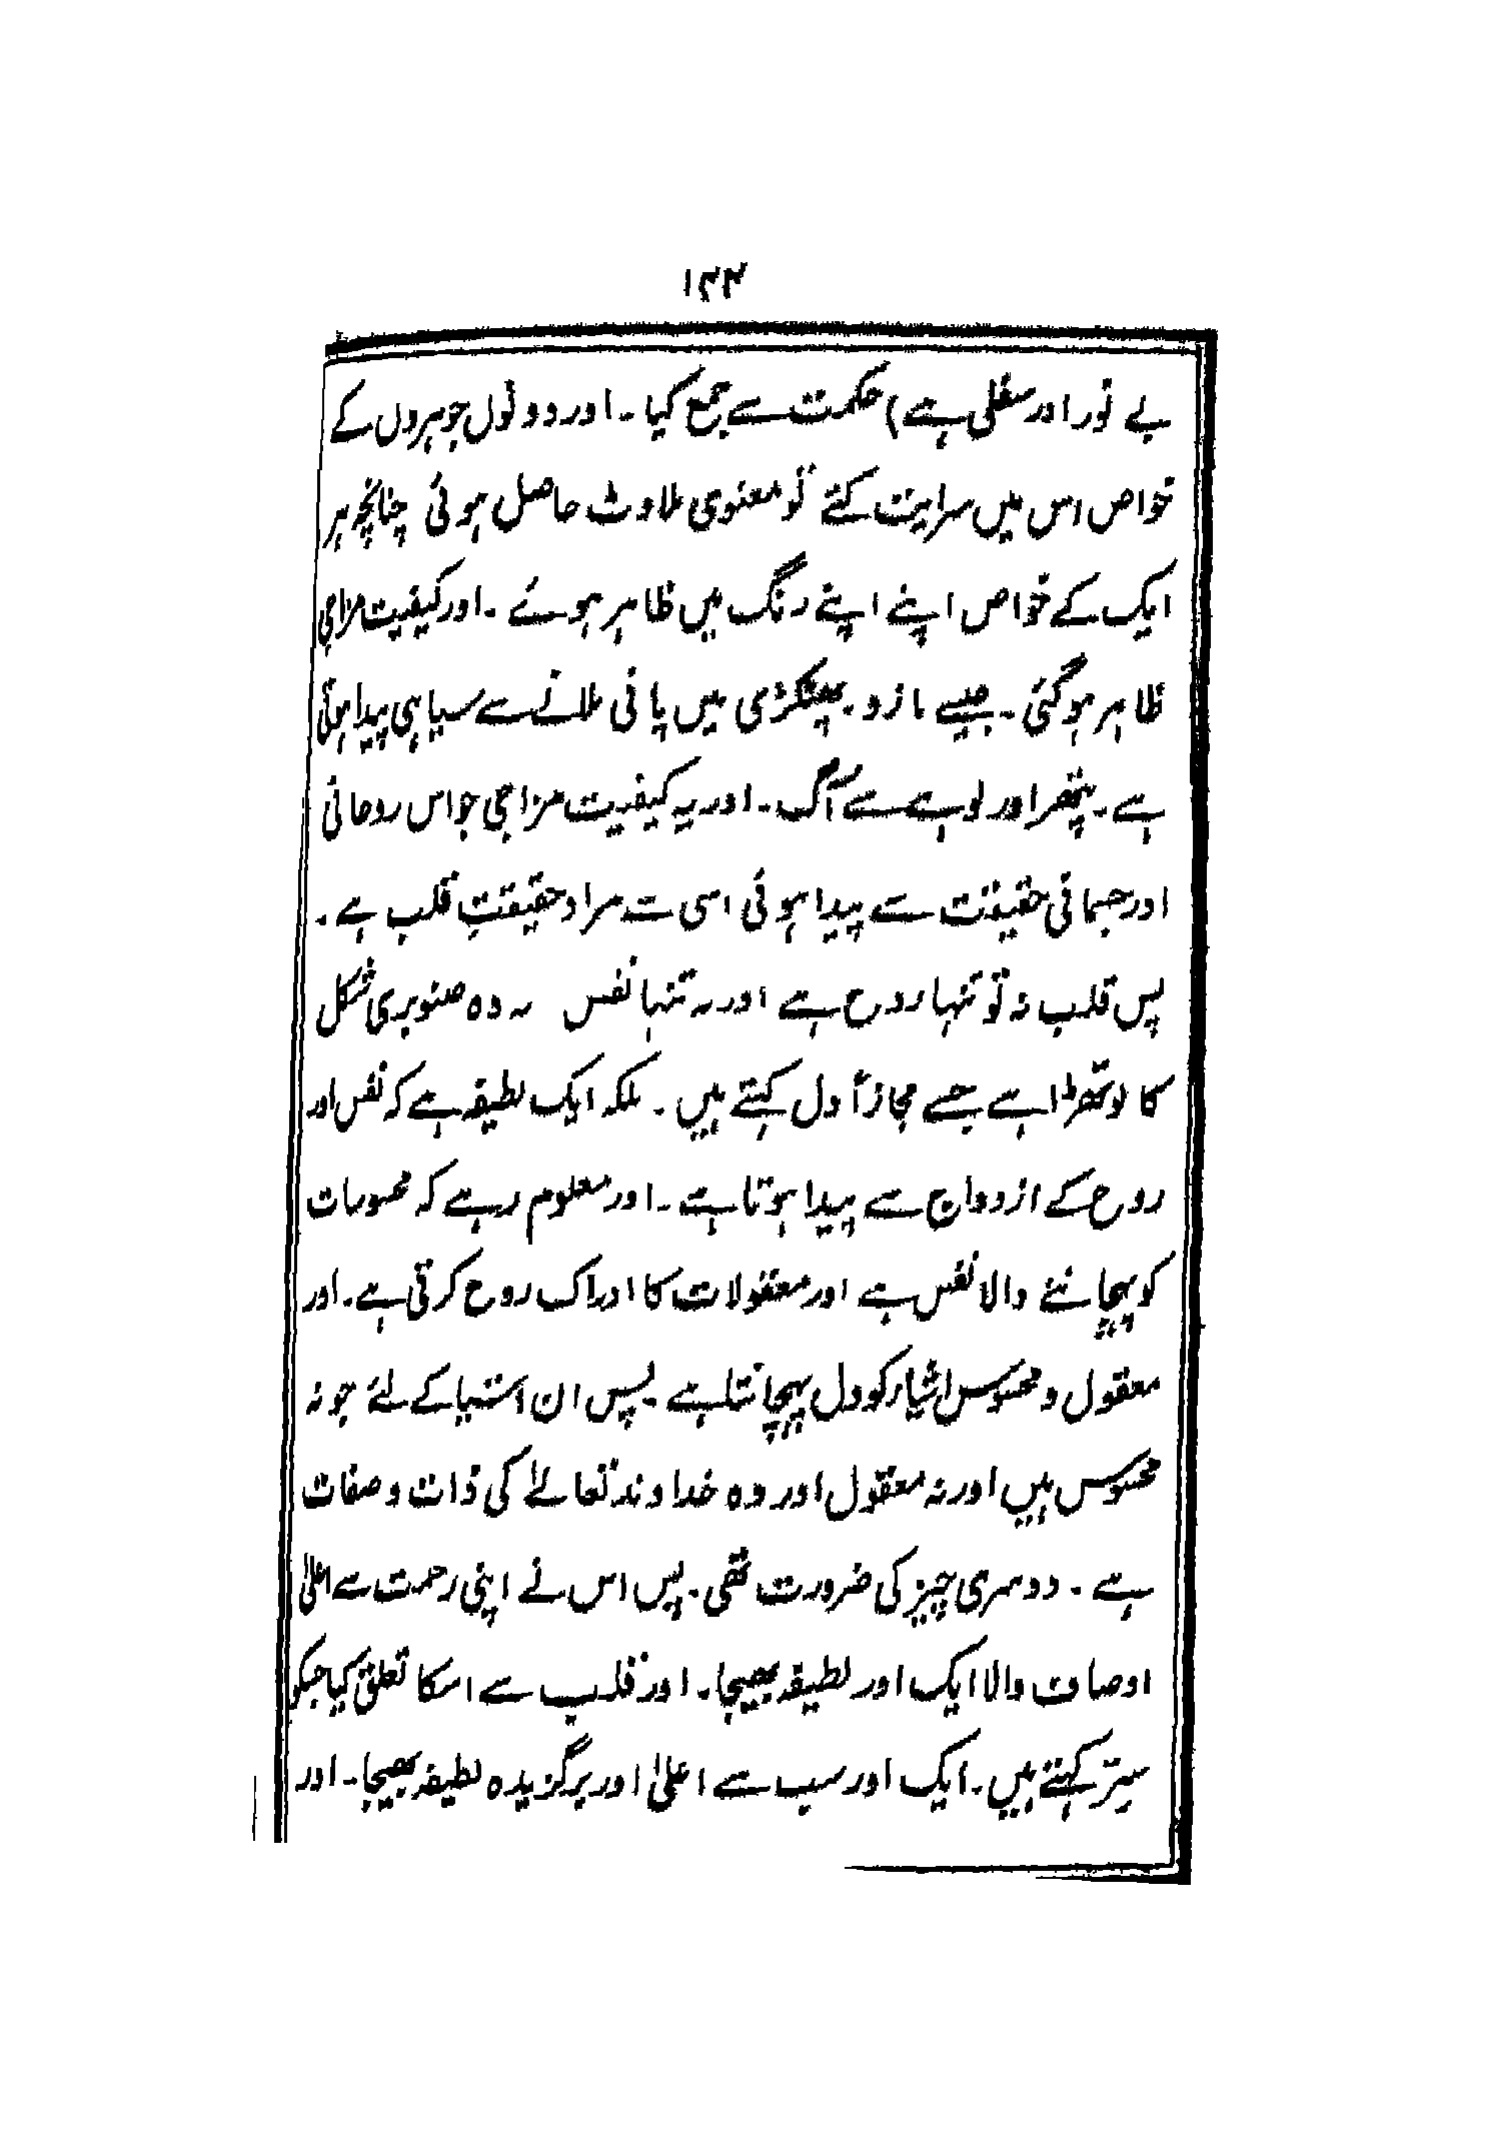 ۱۳۴
بے نور اور سفلی ہے) حکمت سے جمع کیا۔ اور دونوں جوہروں کے
خواص اس میں سرایت کئے تو معنوی ملاوٹ حاصل ہوئی چنانچہ ہر
ایک کے خواص اپنے اپنے رنگ میں ظاہر ہوئے۔ اور کیفیت مزاجی
ظاہر ہوگئی۔ جیسے مازو۔ پھٹکڑی میں پانی ملانے سے سیاہی پیدا ہوتی
ہے۔ پتھر اور لوہے سے آگ۔ اور یہ کیفیت مزاجی جو اس روحانی
اور جسمانی حقیقت سے پیدا ہوئی اسی سے مراد حقیقتِ قلب ہے۔
پس قلب نہ تو تنہا روح ہے اور نہ تنہا نفس نہ وہ صنوبری شکل
کا لوتھڑا ہے جسے مجازاً دل کہتے ہیں۔ بلکہ ایک لطیفہ ہے کہ نفس اور
روح کے ازدواج سے پیدا ہوتا ہے۔ اور معلوم رہے کہ محسوسات
کو پہچاننے والا نفس ہے اور معقولات کا ادراک روح کرتی ہے۔ اور
معقول و محسوس اشیاء کو دل پہچانتا ہے۔ پس ان اشیا کے لئے جو نہ
محسوس ہیں اور نہ معقول اور وہ خداوند تعالےٰ کی ذات و صفات
ہے۔ دوسری چیز کی ضرورت تھی۔ پس اس نے اپنی رحمت سے اعلیٰ
اوصاف والا ایک اور لطیفہ بھیجا۔ اور قلب سے اسکا تعلق کیا جسکو
سِرّ کہتے ہیں۔ ایک اور سب سے اعلیٰ اور برگزیدہ لطیفہ بھیجا۔ اور